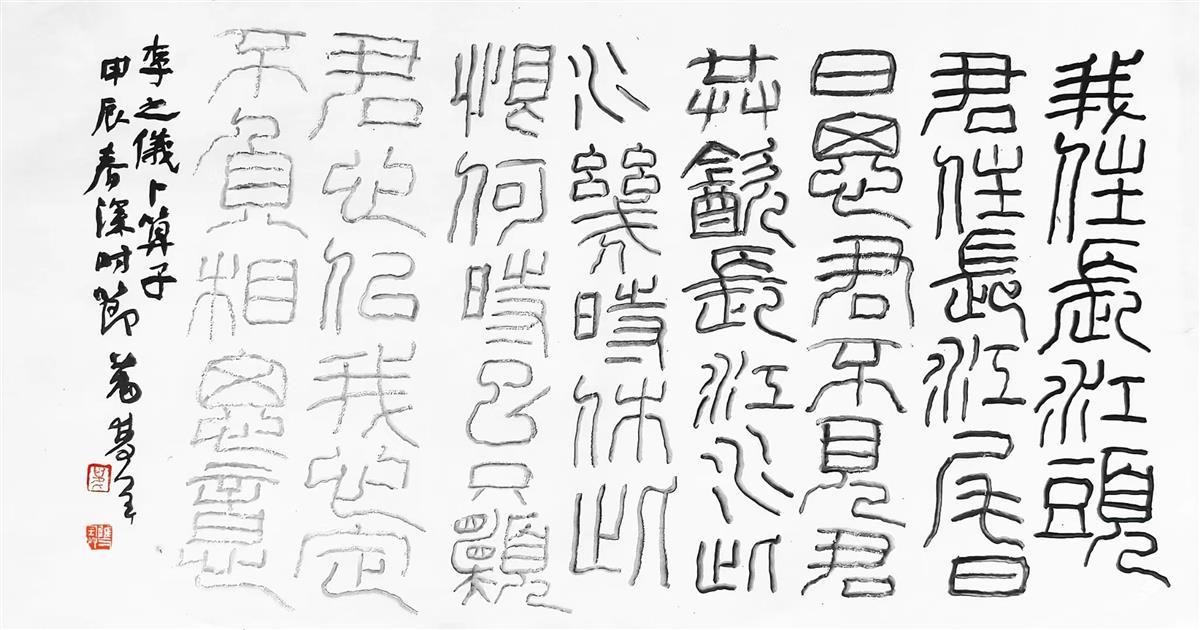 我住長江頭
君住長江尾日
日思君不見君
共飲長江水此
水幾時休此
恨何時已只願
君心似我心定
不負相思意
李之儀卜算子
甲辰春深时節